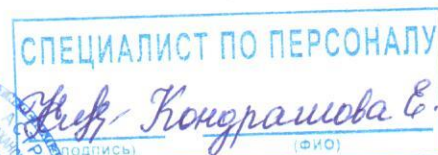 СПЕЦИАЛИСТ ПО ПЕРСОНАЛУ
Кондрашова Е.
(подпись) (ФИО)